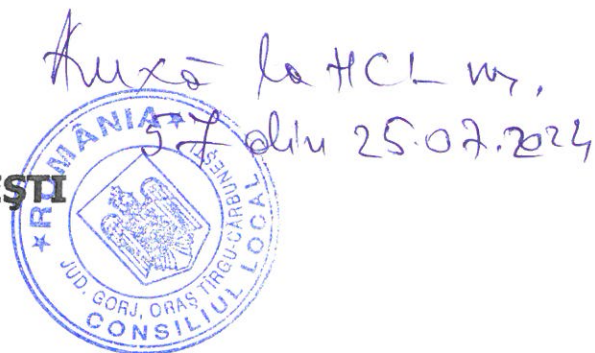 Anexă la HCL nr.
57 din 25.07.2024
EȘTI
★ ROMÂNIA ★
JUD. GORJ, ORAȘ TÎRGU-CĂRBUNEȘTI
CONSILIUL LOCAL